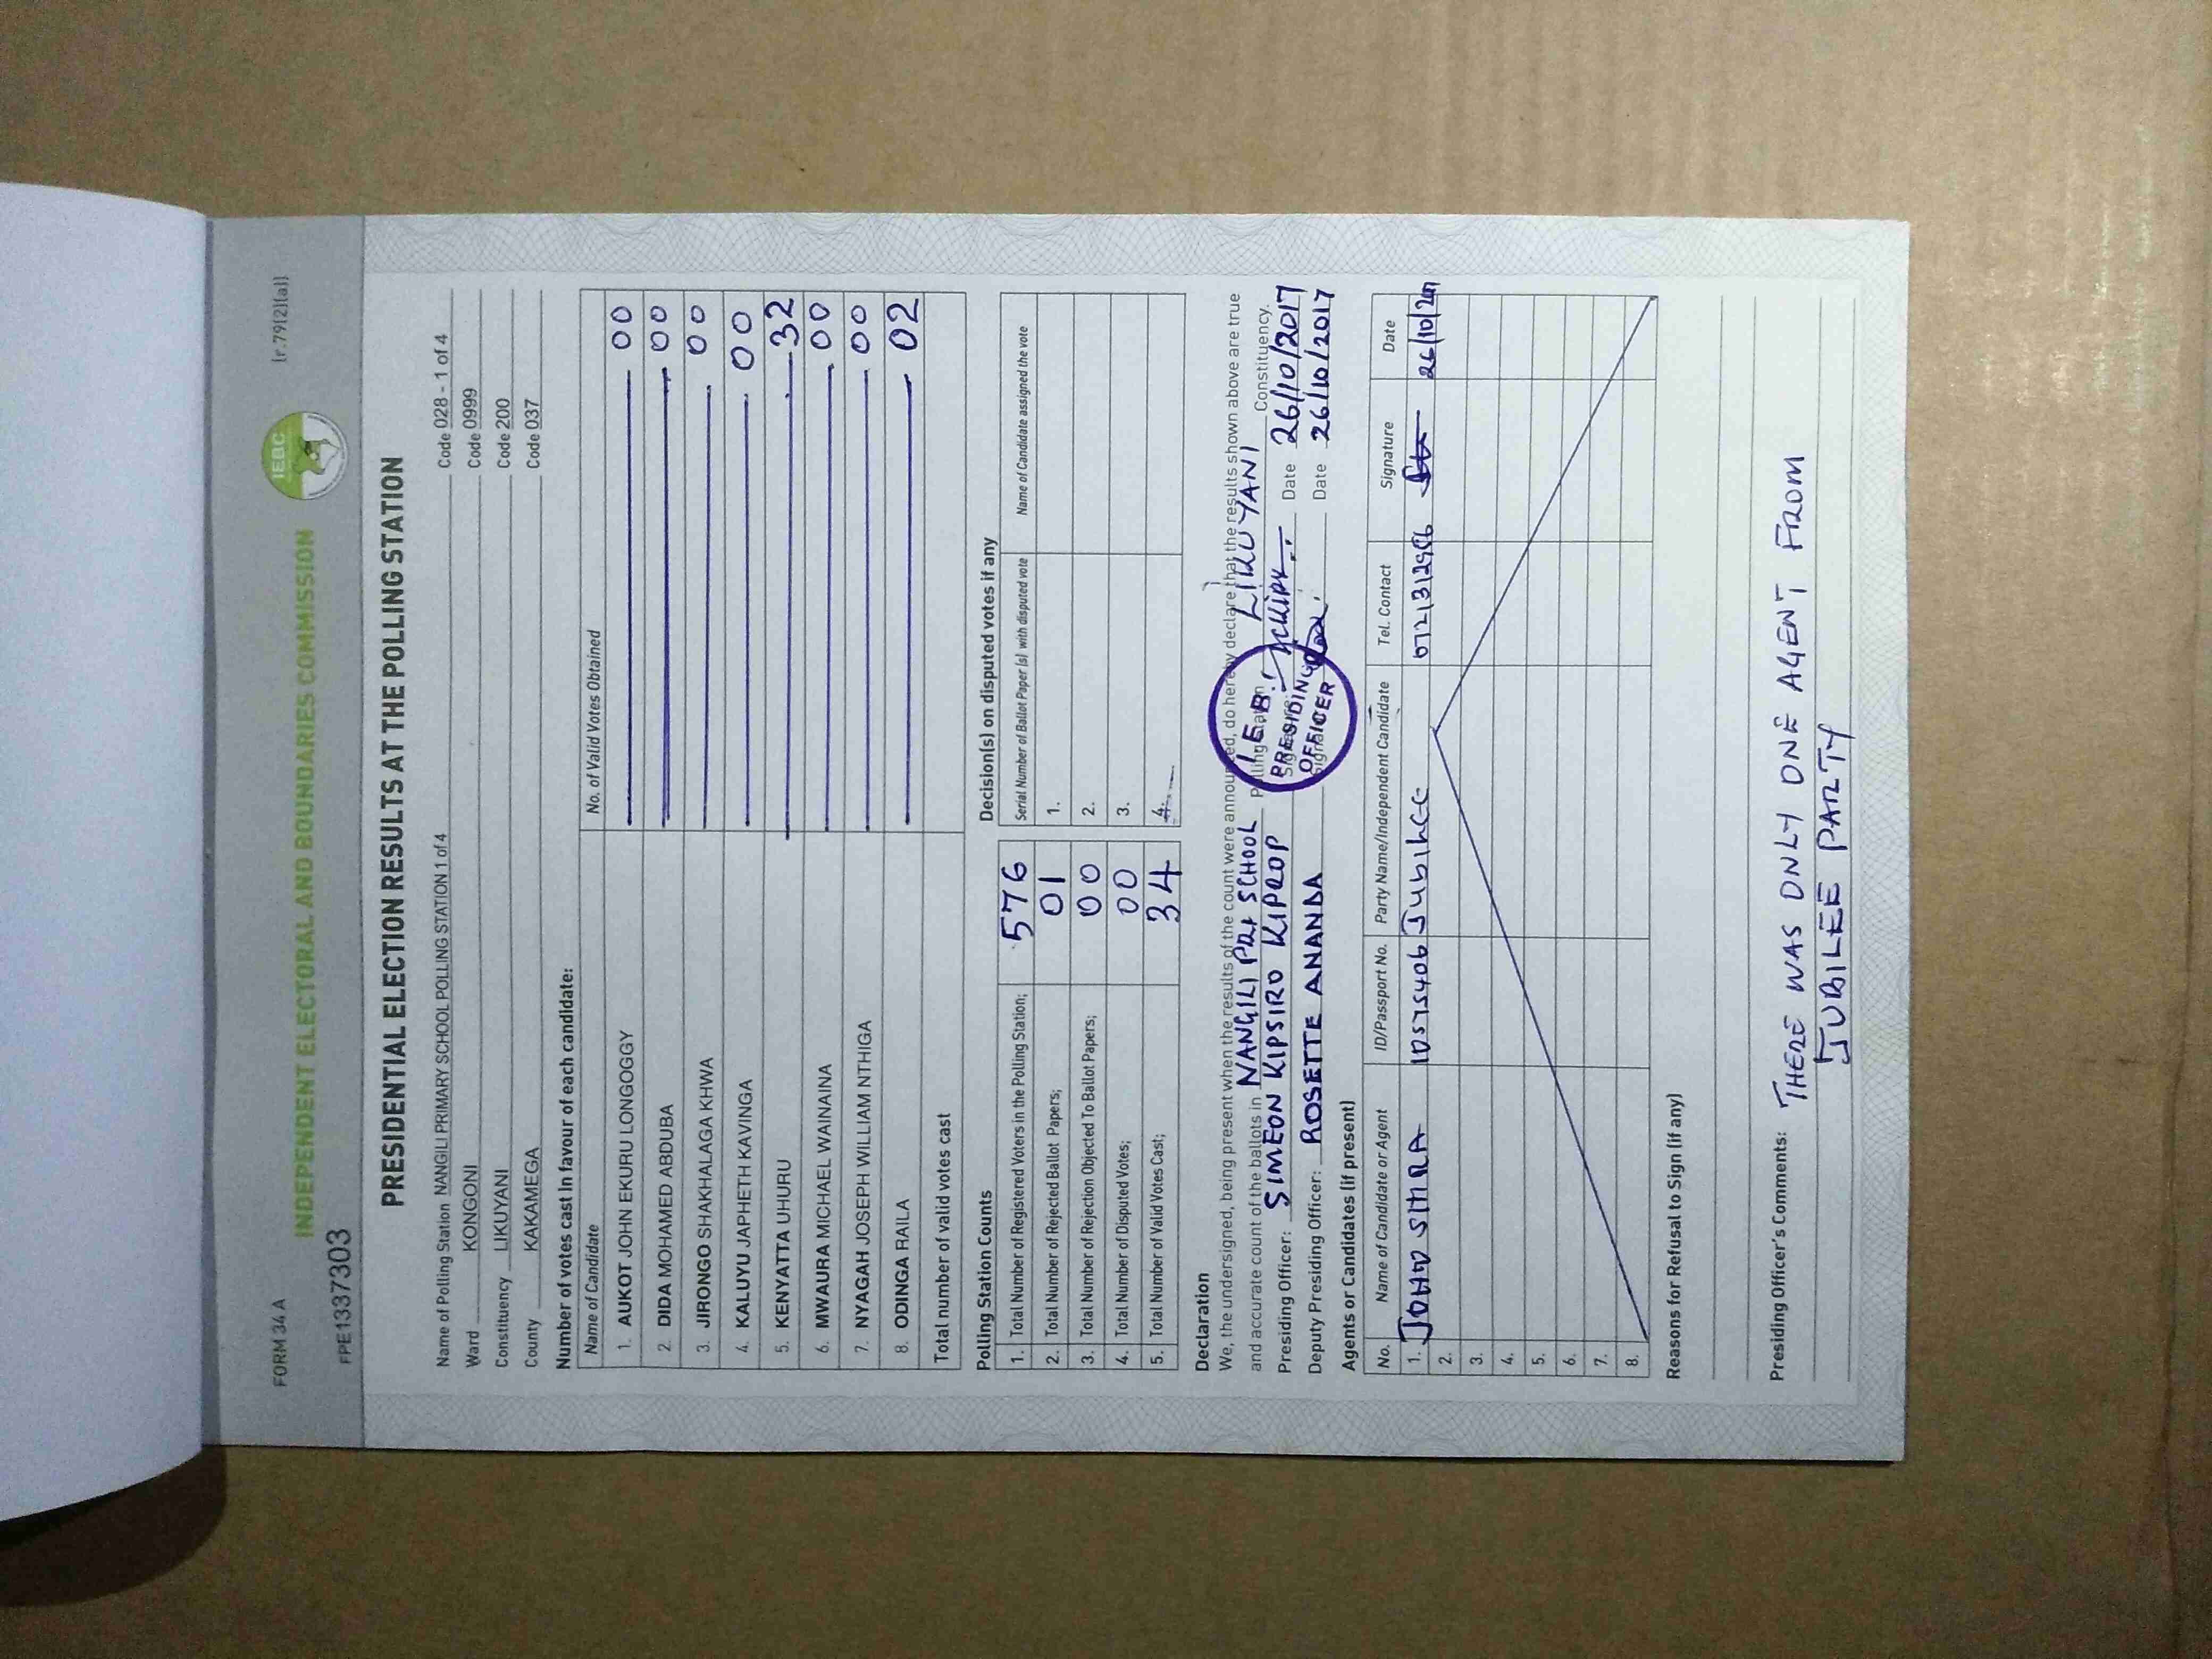 FORM 34 A
[r.79(2)(a)]
INDEPENDENT ELECTORAL AND BOUNDARIES COMMISSION
IEBC
FPE1337303
PRESIDENTIAL ELECTION RESULTS AT THE POLLING STATION
Name of Polling Station NANGILI PRIMARY SCHOOL POLLING STATION 1 of 4 Code 028 - 1 of 4
Ward KONGONI Code 0999
Constituency LIKUYANI Code 200
County KAKAMEGA Code 037
Number of votes cast in favour of each candidate:
Name of Candidate No. of Valid Votes Obtained
1. AUKOT JOHN EKURU LONGOGGY 00
2. DIDA MOHAMED ABDUBA 00
3. JIRONGO SHAKHALAGA KHWA 00
4. KALUYU JAPHETH KAVINGA 00
5. KENYATTA UHURU 32
6. MWAURA MICHAEL WAINAINA 00
7. NYAGAH JOSEPH WILLIAM NTHIGA 00
8. ODINGA RAILA 02
Total number of valid votes cast
Polling Station Counts
1. Total Number of Registered Voters in the Polling Station; 576
2. Total Number of Rejected Ballot Papers; 01
3. Total Number of Rejection Objected To Ballot Papers; 00
4. Total Number of Disputed Votes; 00
5. Total Number of Valid Votes Cast; 34
Decision(s) on disputed votes if any
Serial Number of Ballot Paper (s) with disputed vote Name of Candidate assigned the vote
1.
2.
3.
4.
Declaration
We, the undersigned, being present when the results of the count were announced, do hereby declare that the results shown above are true
and accurate count of the ballots in NANGILI PRI SCHOOL Polling Station LIKUYANI Constituency.
Presiding Officer: SIMEON KIPSIRO KIPROP Signature: Date 26/10/2017
Deputy Presiding Officer: ROSETTE ANANDA Signature: Date 26/10/2017
PRESIDING
OFFICER
Agents or Candidates (if present)
No. Name of Candidate or Agent ID/Passport No. Party Name/Independent Candidate Tel. Contact Signature Date
1. JOHN Jubilee 26/10/2017
2.
3.
4.
5.
6.
7.
8.
Reasons for Refusal to Sign (if any)
Presiding Officer's Comments: THERE WAS ONLY ONE AGENT FROM
JUBILEE PARTY